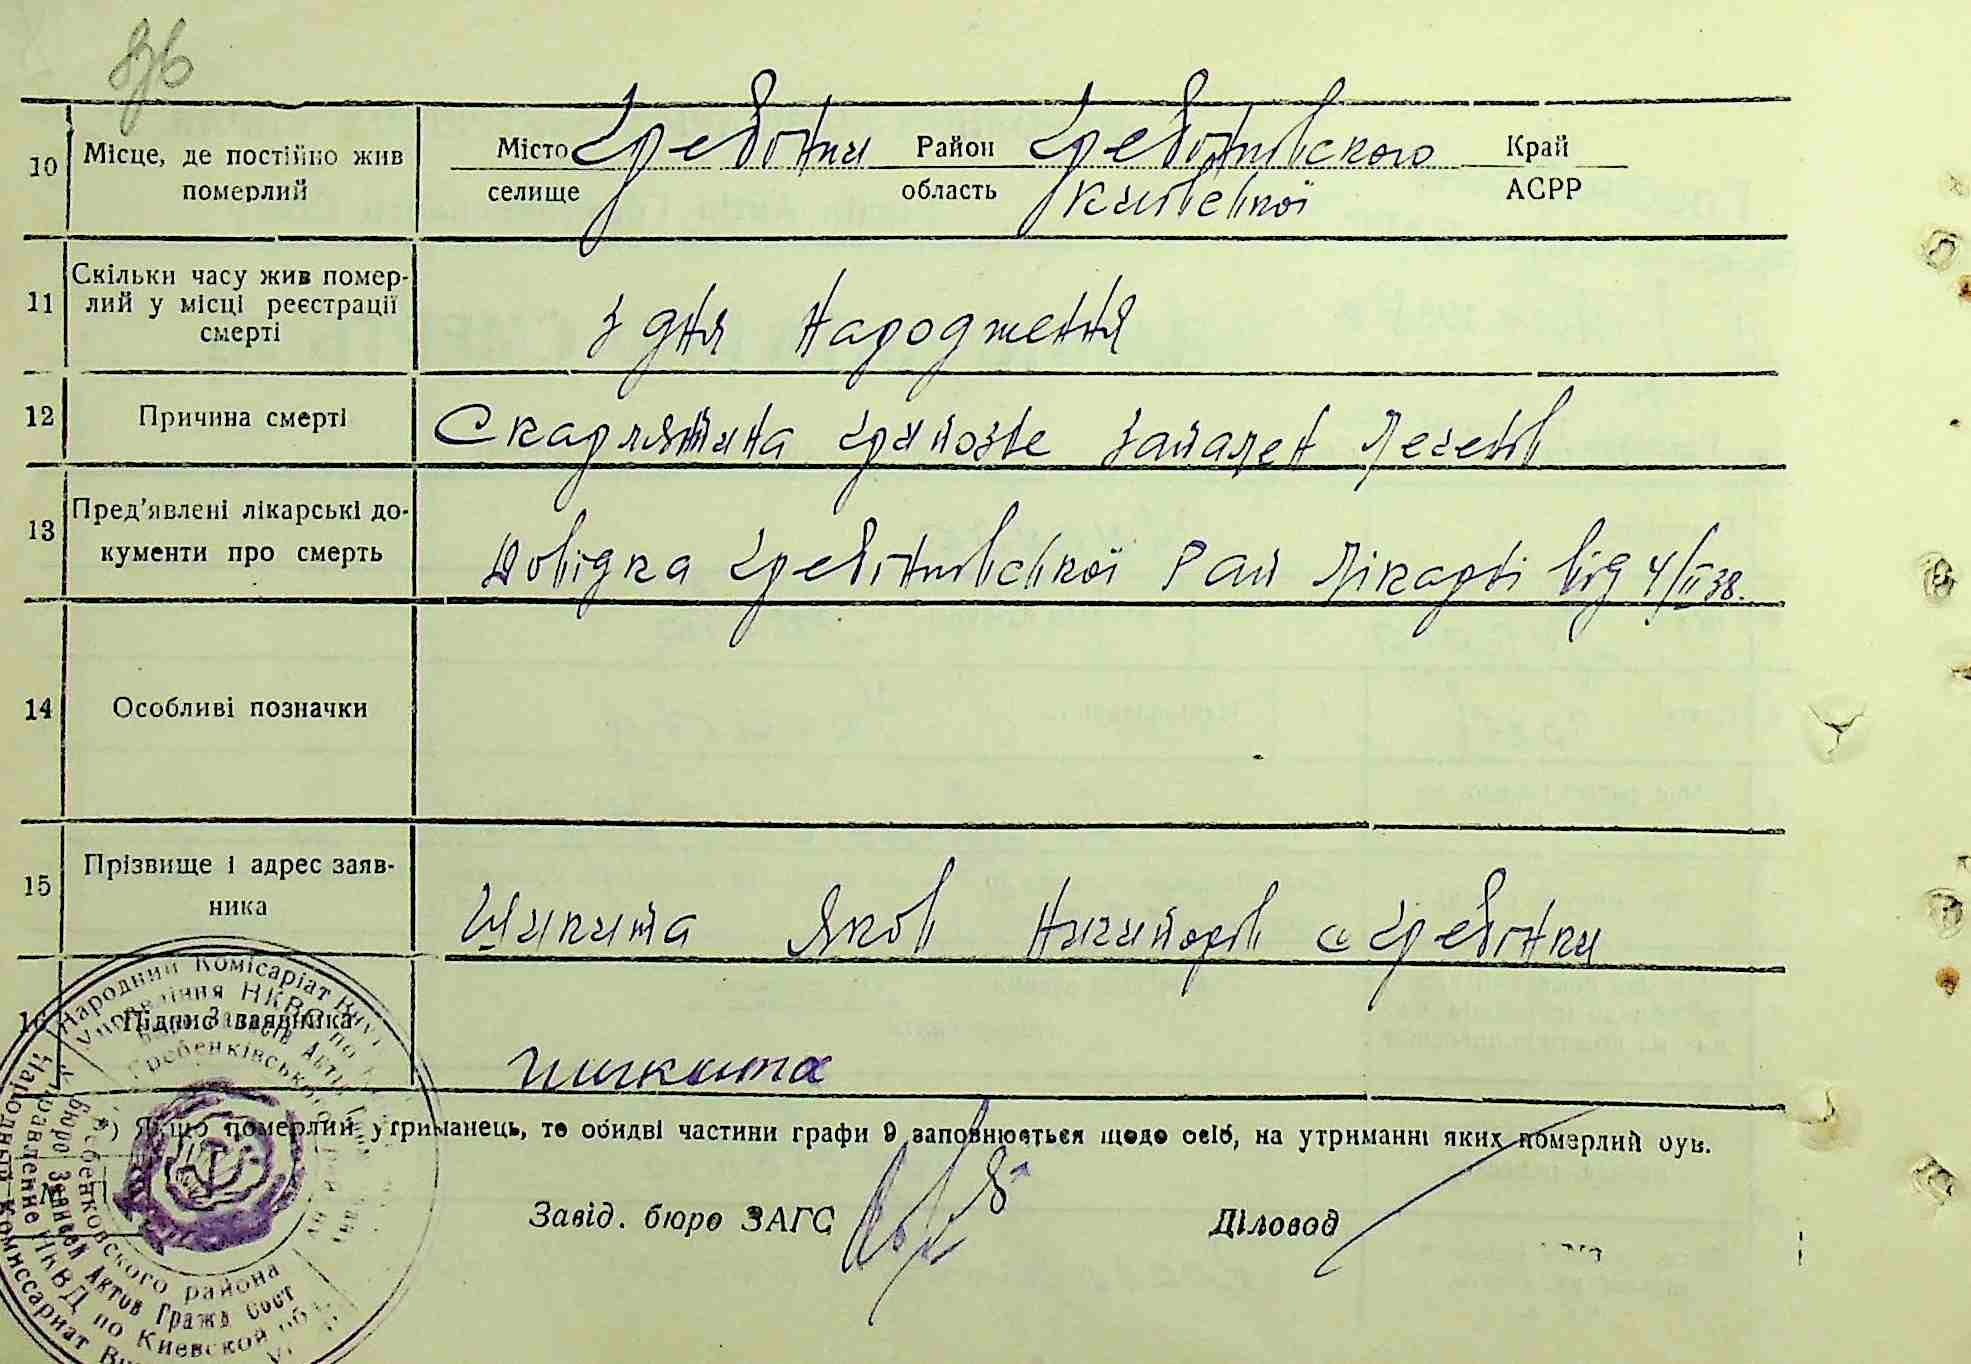 876
10 Місце, де постійно жив Місто Гребінки Район Гребінківского Край
померлий селище область Київської АСРР
11 Скільки часу жив помер-
лий у місці реєстрації з дня народження
смерті
12 Причина смерті Скарлятина крупозне запален легенів
13 Пред'явлені лікарські до- Довідка Гребінківської Рай лікарні від 4/II 38.
кументи про смерть
14 Особливі позначки
15 Прізвище і адрес заяв-
ника Шикита Яков Ничипорів с Гребінки
16 Підпис заявника
Шикита
*) Якщо померлий утриманець, то обидві частини графи 9 заповнюється щодо осіб, на утриманні яких померлий був.
Завід. бюро ЗАГС Діловод
Народний Комісаріат Внут
Управління НКВС по
Бюро Записів Актів Гром
Гребенківського району
Гребенковского района
Бюро Записей Актов Гражд Сост
Управление НКВД по Киевской обл
Народный Комиссариат Вн